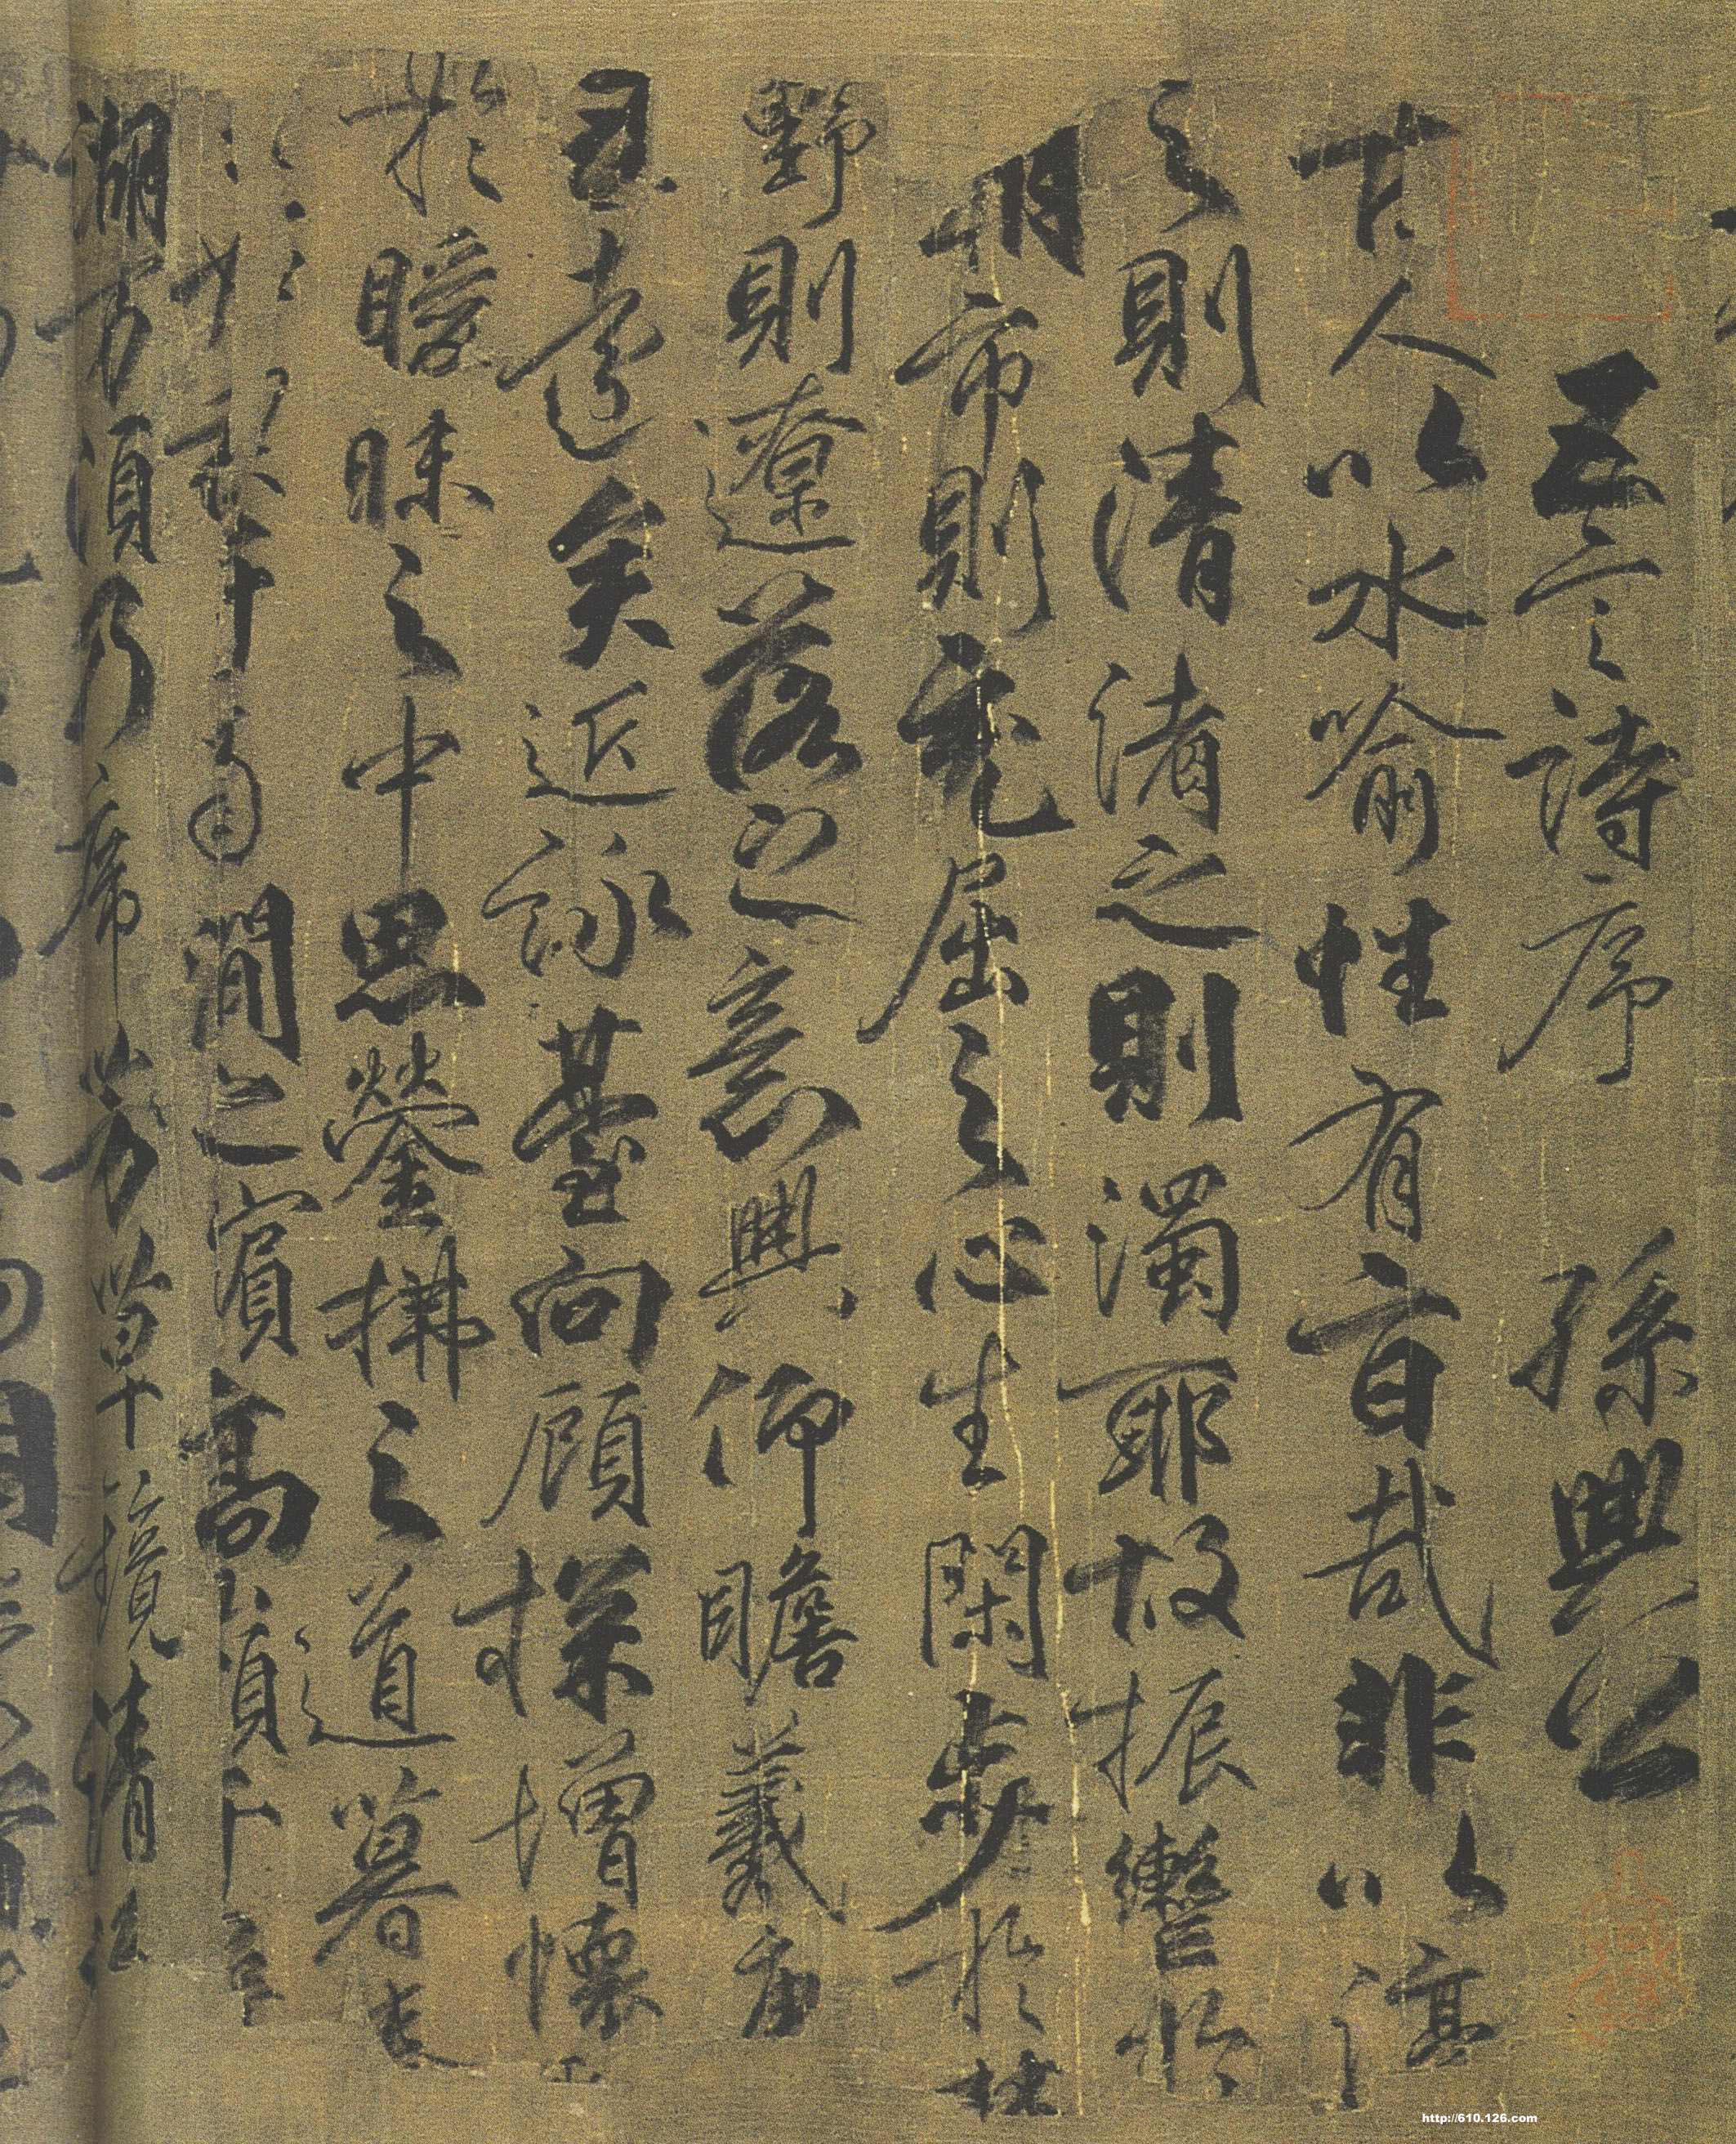 五言詩序 孫興公
古人以水喻性有旨哉非以渟
之則清渚之則濁耶故振轡於
朝市則充屈之心生閑步於林
野則遼落之意興仰瞻羲唐
已遠矣近詠臺向顧探增懷
於曖昧之中思鎣拂之道暮春
于南澗之濱高嶺千尋
湖萬頃乃席芳草鏡清流
http://610.126.com